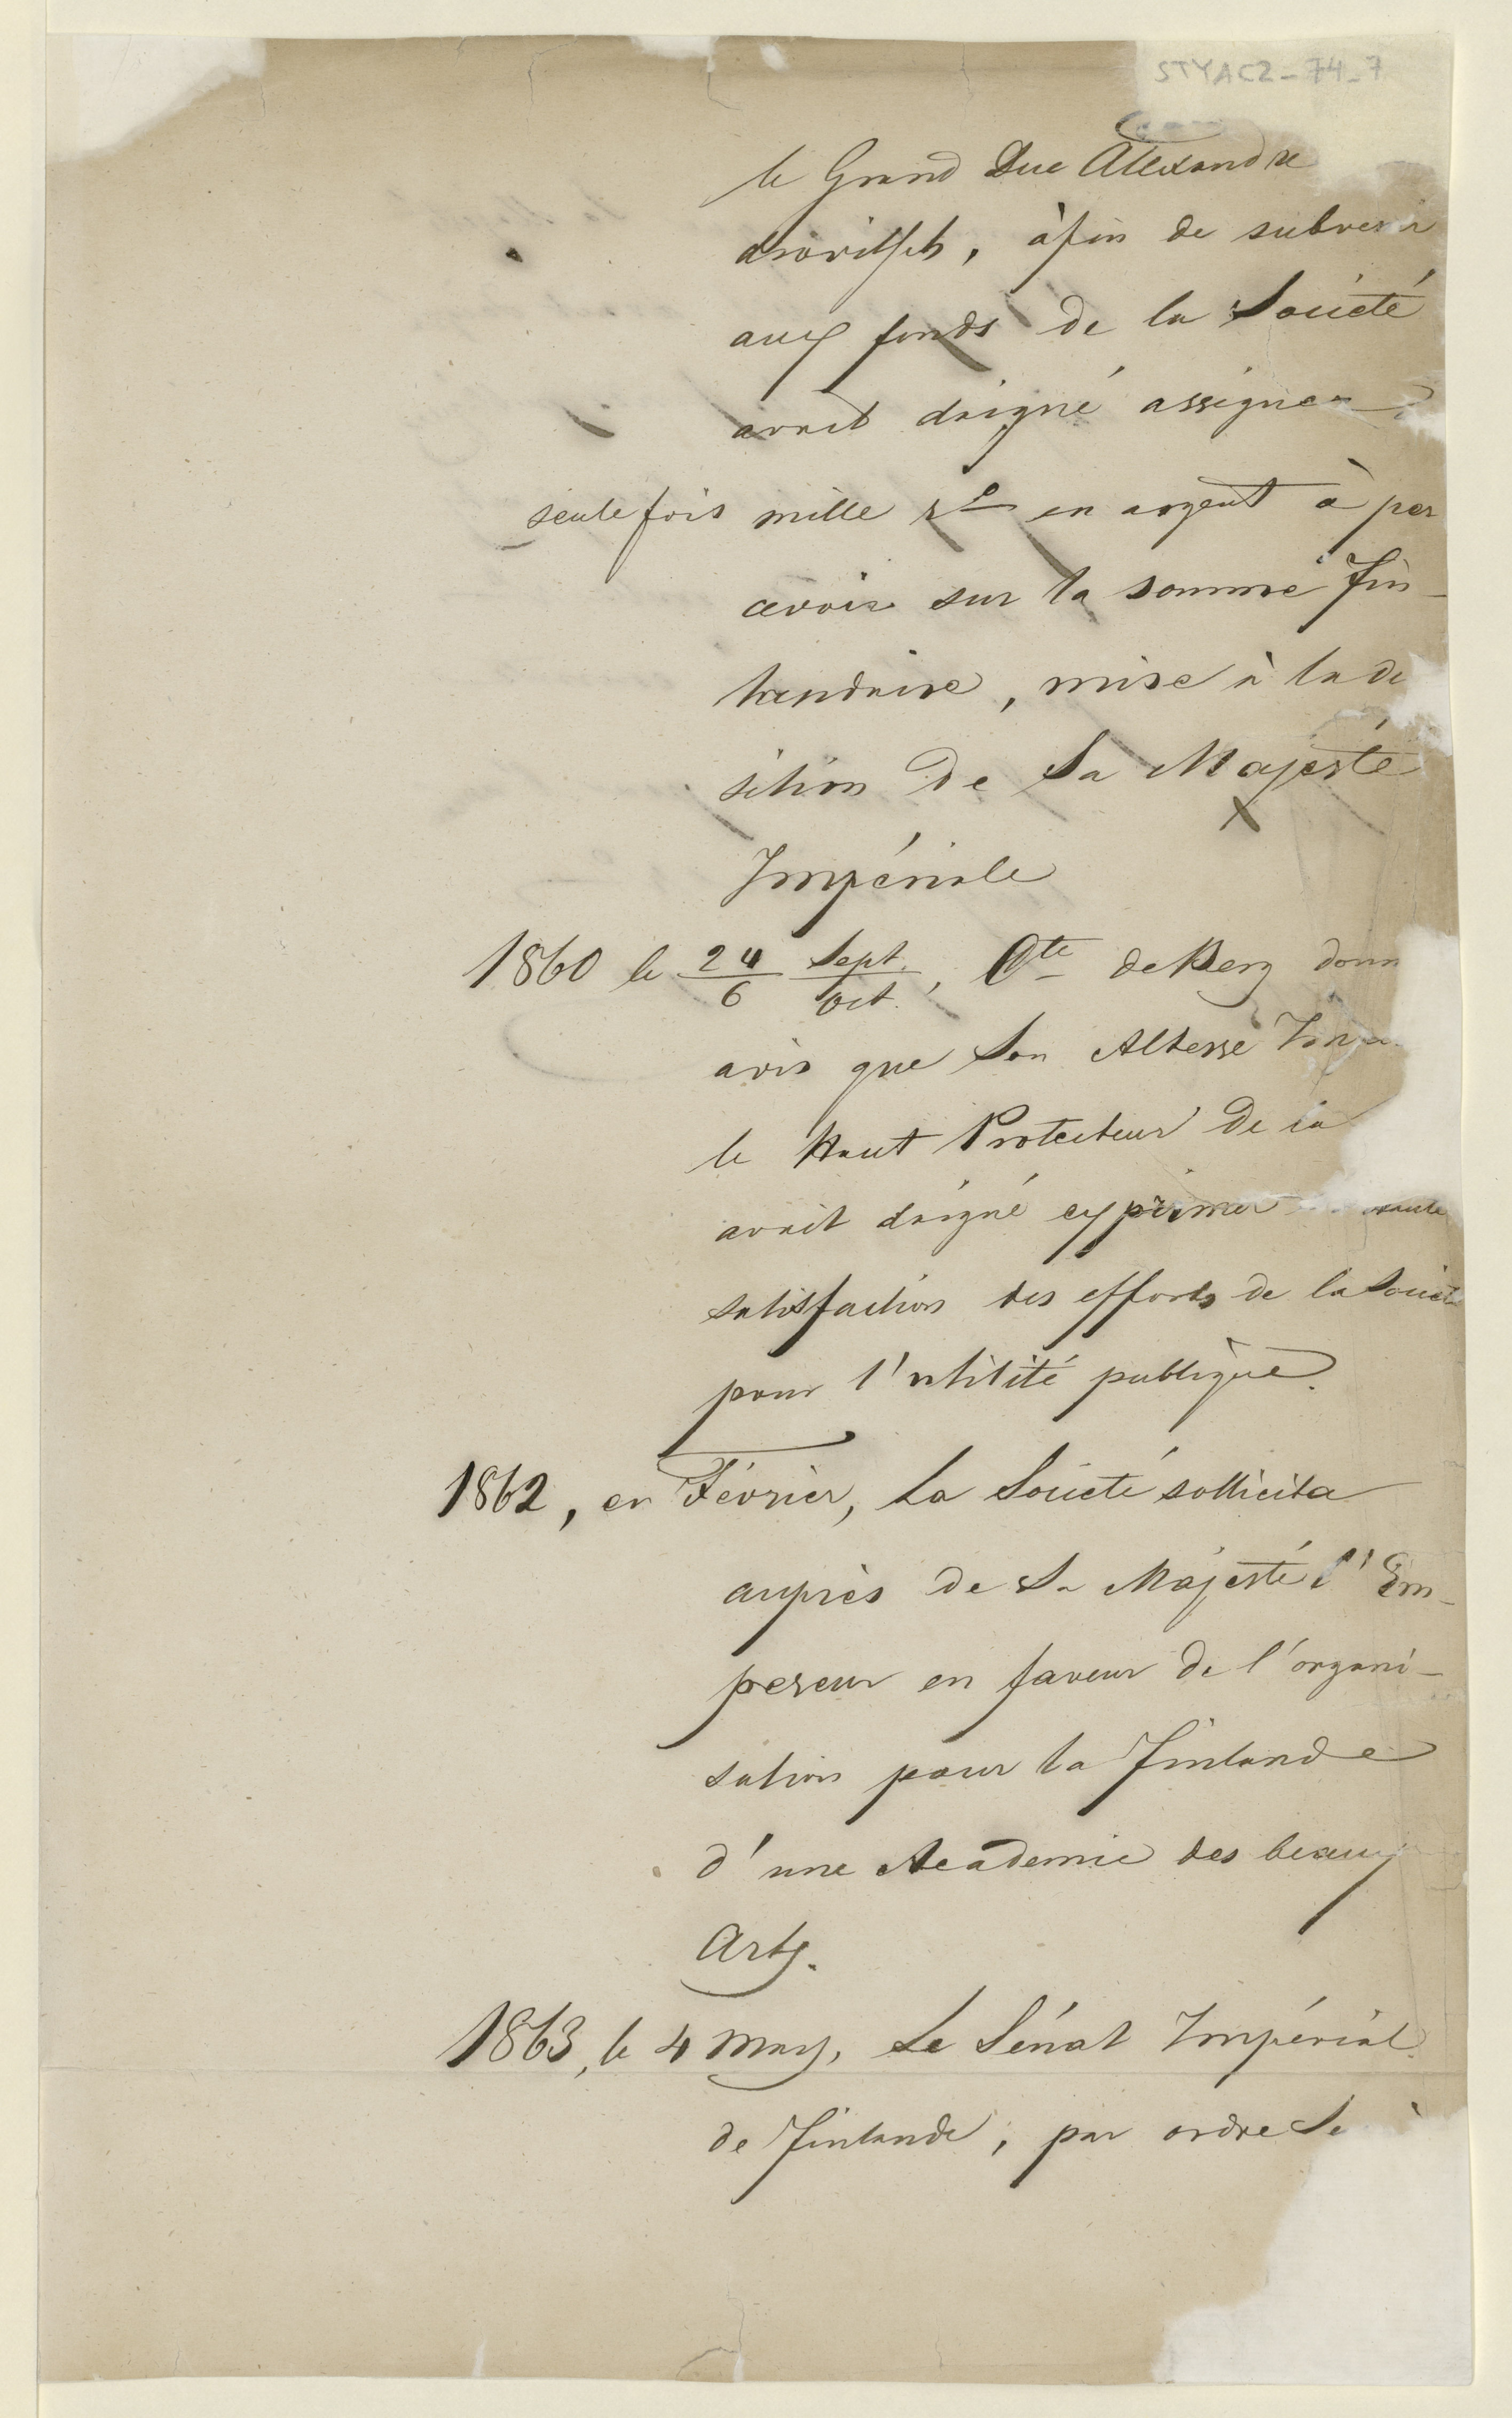 STYAC2-74-7
le Grand Duc Alexandre
drovitsch, àfin de subvenir
aux fonds de la Société
avait daigné assigner
seule fois mille Ro en argent à per
cevoir sur la somme fin-
landaise, mise à la di
sition de Sa Majesté
Impériale
1860 le 24/6 Sept./Oct., Cte de Berg donn
avis que Son Altesse Imp
le Haut Protecteur de la
avait daigné exprimer haute
satisfaction des efforts de la Sociét
pour l'utilité publique.
1862, en Février, La Société sollicita
auprès de Sa Majesté l'Em-
pereur en faveur de l'organi-
sation pour la Finlande
d'une Academie des beaux
Arts.
1863, le 4 May, Le Sénat Impérial
de Finlande, par ordre de